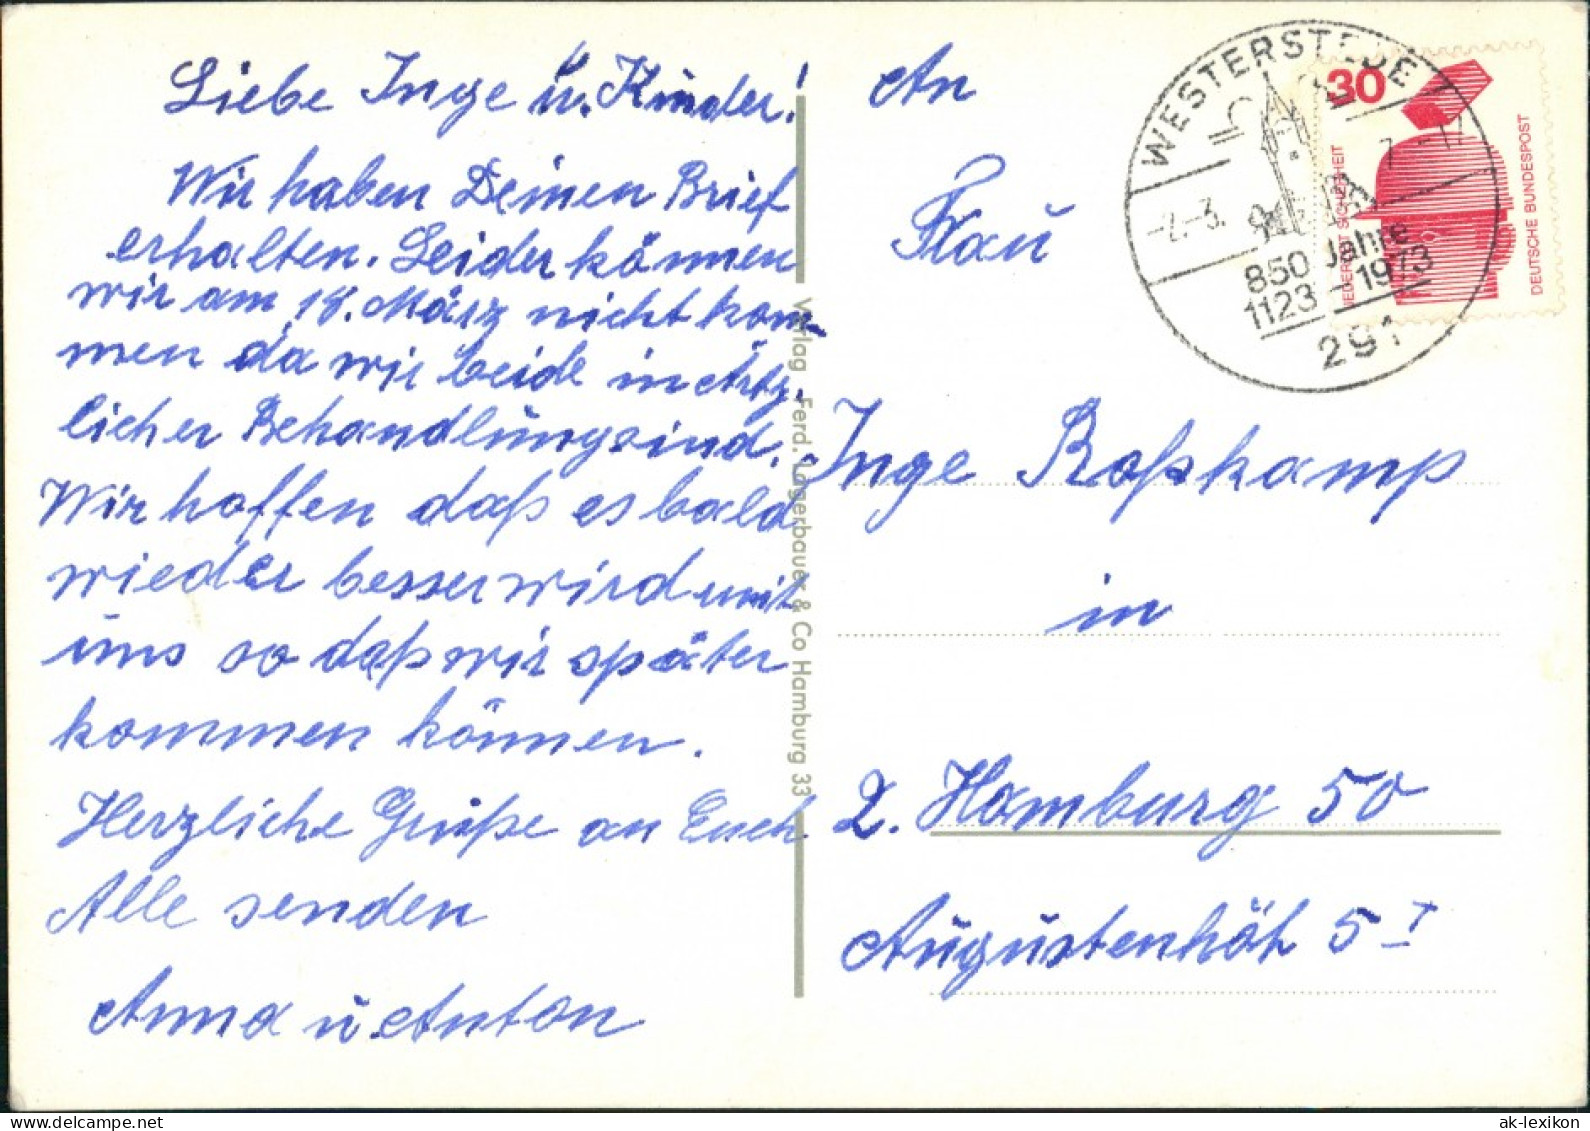 Liebe Inge u. Kinder!
Wir haben Deinen Brief
erhalten. Leider können
wir am 18. März nicht kom-
men da wir beide in Ärtz-
licher Behandlung sind.
Wir hoffen daß es bald
wieder besser wird mit
uns so daß wir später
kommen können.
Herzliche Grüße an Euch
Alle senden
Anna u Anton
Verlag Ferd. Lagerbauer & Co Hamburg 33
An
Frau
Inge Roßkamp
in
2. Hamburg 50
Augustenhöh 5 I
WESTERSTEDE
850 Jahre
1123-1973
291
30
JEDERZEIT SICHERHEIT
DEUTSCHE BUNDESPOST
ak-lexikon